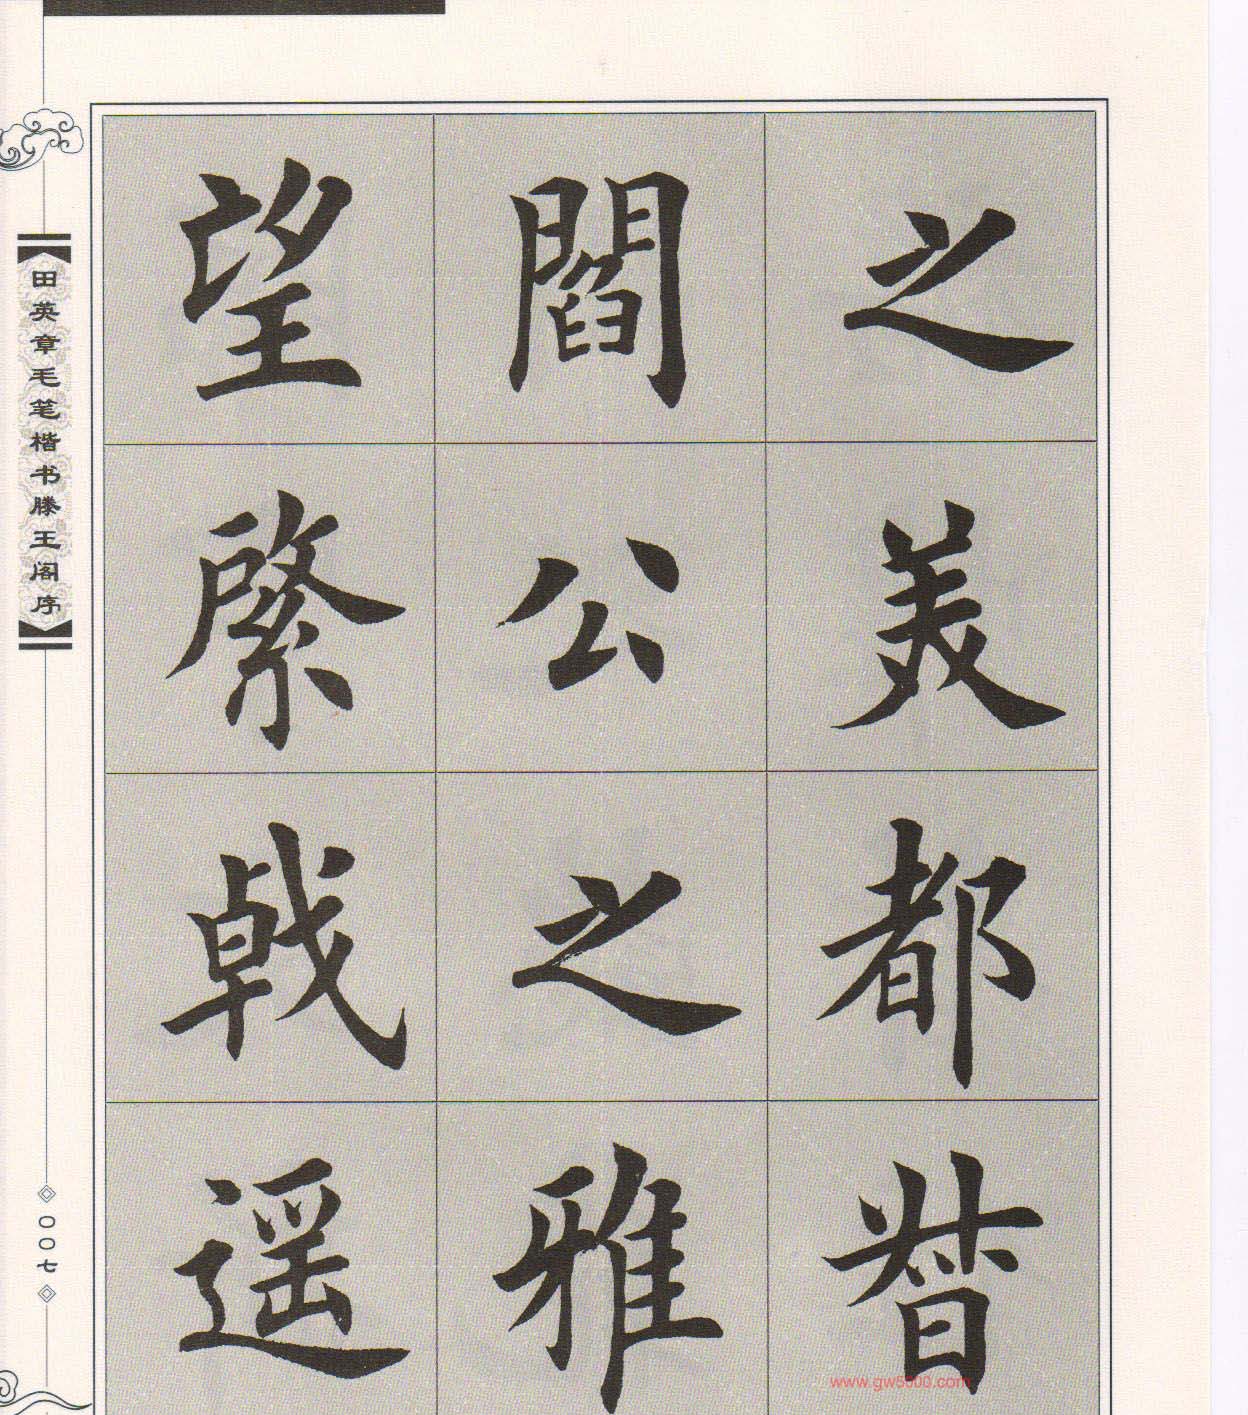 之美都督
閻公之雅
望綮戟遥
田英章毛笔楷书滕王阁序
〇〇七
www.gw5000.com